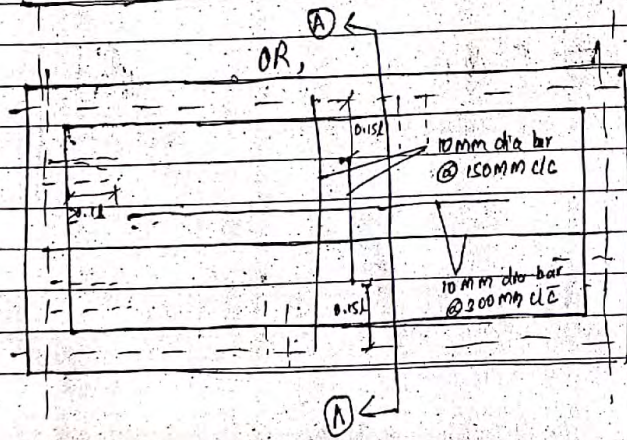 A
OR,
0.15l
10mm dia bar
@ 150mm c/c
0.1l
10mm dia bar
@ 300mm c/c
0.15l
A